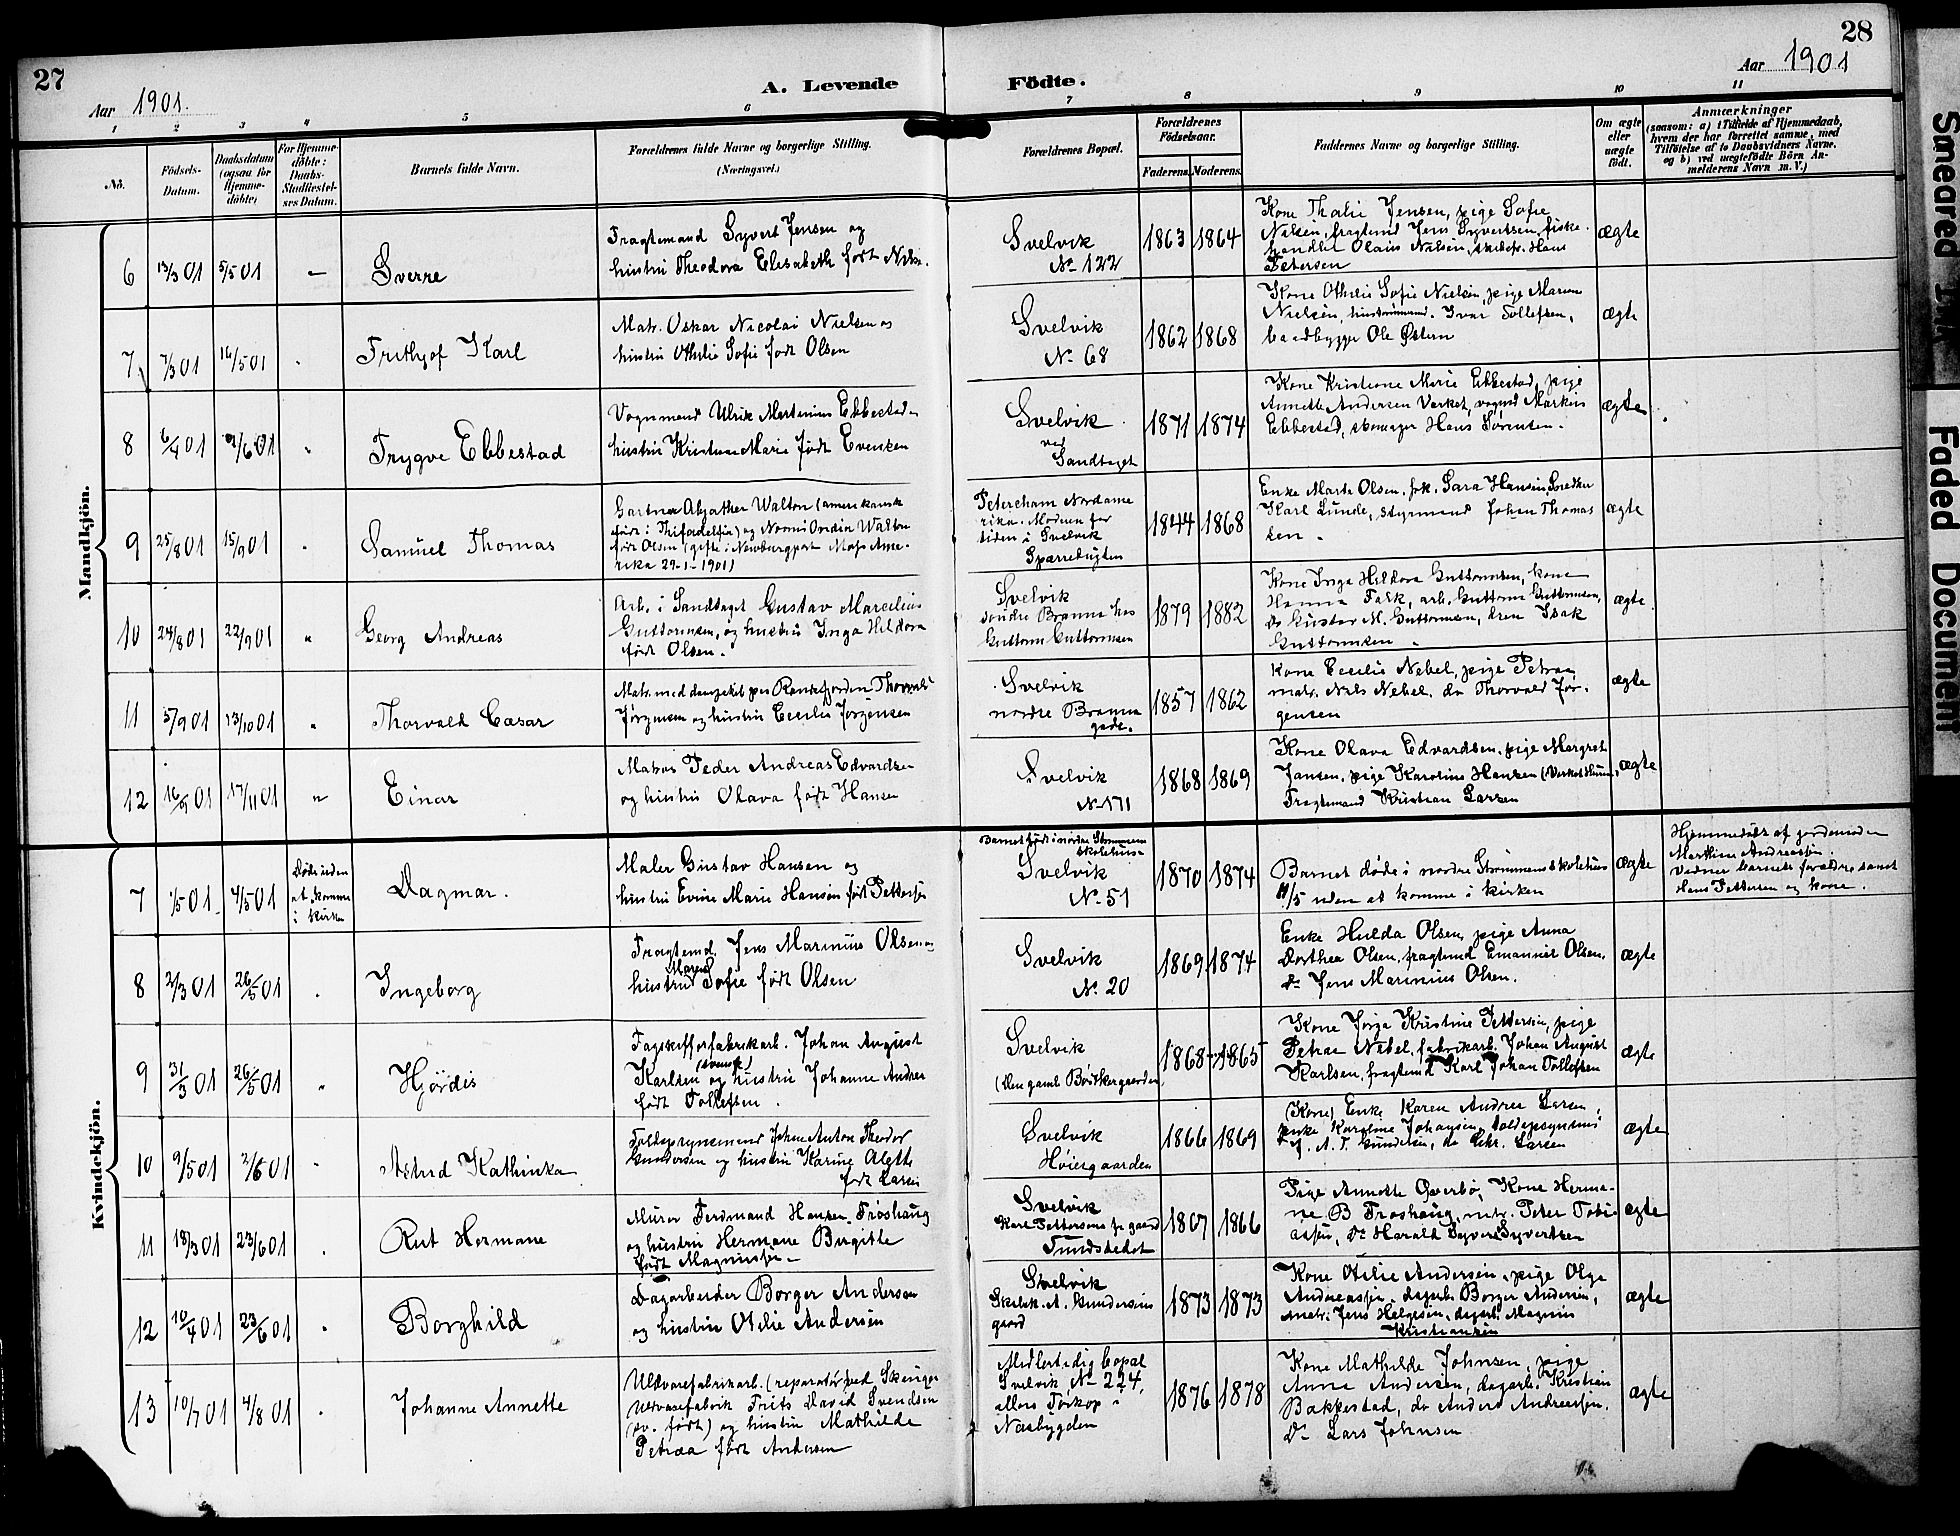 27
Aar 1901.
A. Levende Födte.
28
Aar 1901
1 2 3 4 5 6 7 8 9 10 11
Nô.
Födsels-
Datum.
Daabsdatum
(ogsaa for
Hjemme-
döbte)
For Hjemme-
döbte:
Daabs-
Stadfæstel-
ses Datum.
Barnets fulde Navn.
Forældrenes fulde Navne og borgerlige Stilling.
(Næringsvei.)
Forældrenes Bopæl.
Forældrenes
Födselsaar.
Faderens. Moderens.
Faddernes Navne og borgerlige Stilling.
Om ægte
eller
uægte
födt.
Anmærkninger
(saasom: a) i Tilfælde af Hjemmedaab,
hvem der har forrettet samme, med
Tilföielse af to Daabsvidners Navne.
og b) ved uægtefödte Börn An-
melderens Navn m. V.)
Mandkjön.
6 13/3 01 5/5 01 – Sverre
Fragtemand Syvert Jensen og
hustru Theodora Elisabeth født Nils.
Svelvik
No 122
1863 1864
Kone Thalie Jensen, pige Sofie
Nilsen, fragtmd Jens Syvertsen, fiske-
handler Olaus Nilsen, Hans
Petersen
ægte
7 7/3 01 16/5 01 Frithjof Karl
Matr. Oskar Nicolai Nielsen og
hustru Othilie Sofie født Olsen
Svelvik
No 68
1862 1868
Kone Othilie Sofie Nielsen, pige Maren
Nielsen, Ivar Tollefsen,
baadbygge Ole Østern
ægte
8 6/4 01 2/6 01 " Trygve Ebbestad
Vognmand Ulrik Martinius Ebbestad
hustru Kristiane Marie født Evensen
Svelvik
ved
Sandtaget
1871 1874
Kone Kristiane Marie Ebbestad, pige
Annette Andersen Verket, vognmd Markus
Ebbestad, skomager Hans Sørensen.
ægte
9 25/8 01 15/9 01 Samuel Thomas
Gartner Abjather Walton (amerikansk
født i ) og Nomi Ovidia Walton
født Olsen (gifte i Newburgport Mas. Ame-
rika 29-1-1901)
Petersham Nordame
rika. Moderen for
tiden i Svelvik
Sparrebugten
1844 1868
Enke Marte Olsen, frk. Sara Hansen, Snedker
Karl Lunde, styrmand Johan Thomas
sen.
ægte
10 24/8 01 22/9 01 " Georg Andreas
Arb. i Sandtaget Gustav Marcelius
Guttormsen, og hustru Inga Heldora
født Olsen.
Svelvik
søndre Brenna hos
Guttorm Guttormsen
1879 1882
Kone Inga Heldora Guttormsen, kone
Hanna Falk, arb. Guttorm Guttormsen,
do Gustav M. Guttormsen, dren Isak
Guttormsen
ægte
11 5/9 01 13/10 01 " Thorvald Cæsar
Matr. med dampskib paa Ranafjorden Thorvald
Jørgensen og hustru Cecilie Jørgensen
Svelvik
nordre Brenna
gade.
1857 1862
Kone Cecilie Nebel, pige Petrea
matr. Nils Nebel, do Thorvald Jør-
gensen
ægte
12 16/9 01 17/11 01 " Einar
Matros Peder Andreas Edvardsen
og hustru Olava født Hansen
Svelvik
No 171
1868 1869
Kone Olava Edvardsen, pige Margret
Jansen, pige Karoline Hansen (Verket Hurum),
Fragtemand Kristian Larsen
ægte
Kvindekjön.
7 1/5 01 4/5 01
Døde uden
at komme
i kirken
Dagmar.
Maler Gustav Hansen og
hustru Evine Marie Hansen født Pettersen
Barnet født i nordre Strømmens
skolehus
Svelvik
No 51
1870 1874
Barnet døde i nordre Strømmens skolehus
11/5 uden at komme i kirken
ægte
Hjemmedøbt af gjordemoder
Marthine Andreassen.
Vidner barnets forældre samt
Hans Pettersen og kone.
8 2/3 01 26/5 01 Ingeborg
Fragtemd. Jens Marinius Olsen og
hustru Maren Sofie født Olsen
Svelvik
No 20
1869 1874
Enke Hulda Olsen, pige Anna
Dorthea Olsen, fragtmd Emanuel Olsen,
do Jens Marinius Olsen.
ægte
9 31/3 01 26/5 01 " Hjørdis
Tagskifferfabrikarb. Johan August
Karlsen (svensk) og hustru Johanne Andrea
født Tollefsen.
Svelvik
(Den gamle Bødkergaarden)
1868 1865
Kone Jørga Kristine Pettersen, pige
Petrea Nebel, fabrikarb. Johan August
Karlsen, fragtmd Karl Johan Tollefsen
ægte
10 9/5 01 2/6 01 Astrid Kathinka
Toldopsynsmand Johan Anton Theodor
Gundersen og hustru Karine Alette
født Larsen
Svelvik
Høiergaarden
1866 1869
(Kone) Enke Karen Andrea Larsen,
enke Karoline Johansen, toldopsynsmd
J. A. T. Gundersen, do Chr. Larsen
ægte
11 18/3 01 23/6 01 Rut Hermane
Murer Ferdinand Hansen Frøshaug
og hustru Hermane Birgitte
født Magnussen
Svelvik
Karl Pettersens gaard
Tundstedet
1867 1866
Pige Annette Øverbø, Kone Herma-
ne B Frøshaug, mtr. Peter Tobi-
assen, Do Harald Syvers Syvertsen
ægte
12 10/4 01 23/6 01 Borghild
Dagarbeider Borger Andersen
og hustru Otilie Andersen
Svelvik
Skibsk. A. Gundersens
gaard
1873 1873
Kone Otilie Andersen, pige Olga
Andreassen, dagarb. Borger Andersen,
matr. Jens Helgesen, dagarb. Magnus
Kristiansen
ægte
13 10/7 01 4/8 01 Johanne Annette
Uldvarefabrikarb. (reparatør ved Skenger
Uldvarefabrik Frits David Svendsen
(sv. født) og hustru Mathilde
Petrea født Andersen
Midlertidig bopæl
Svelvik No 224,
ellers Torkop i
Næsbygden
1876 1878
Kone Mathilde Johnsen, pige
Anna Andersen, dagarb. Kristian
Bakkestad, do Anders Andreassen,
Do Lars Johnsen
ægte
Smeared Ink
Faded Document